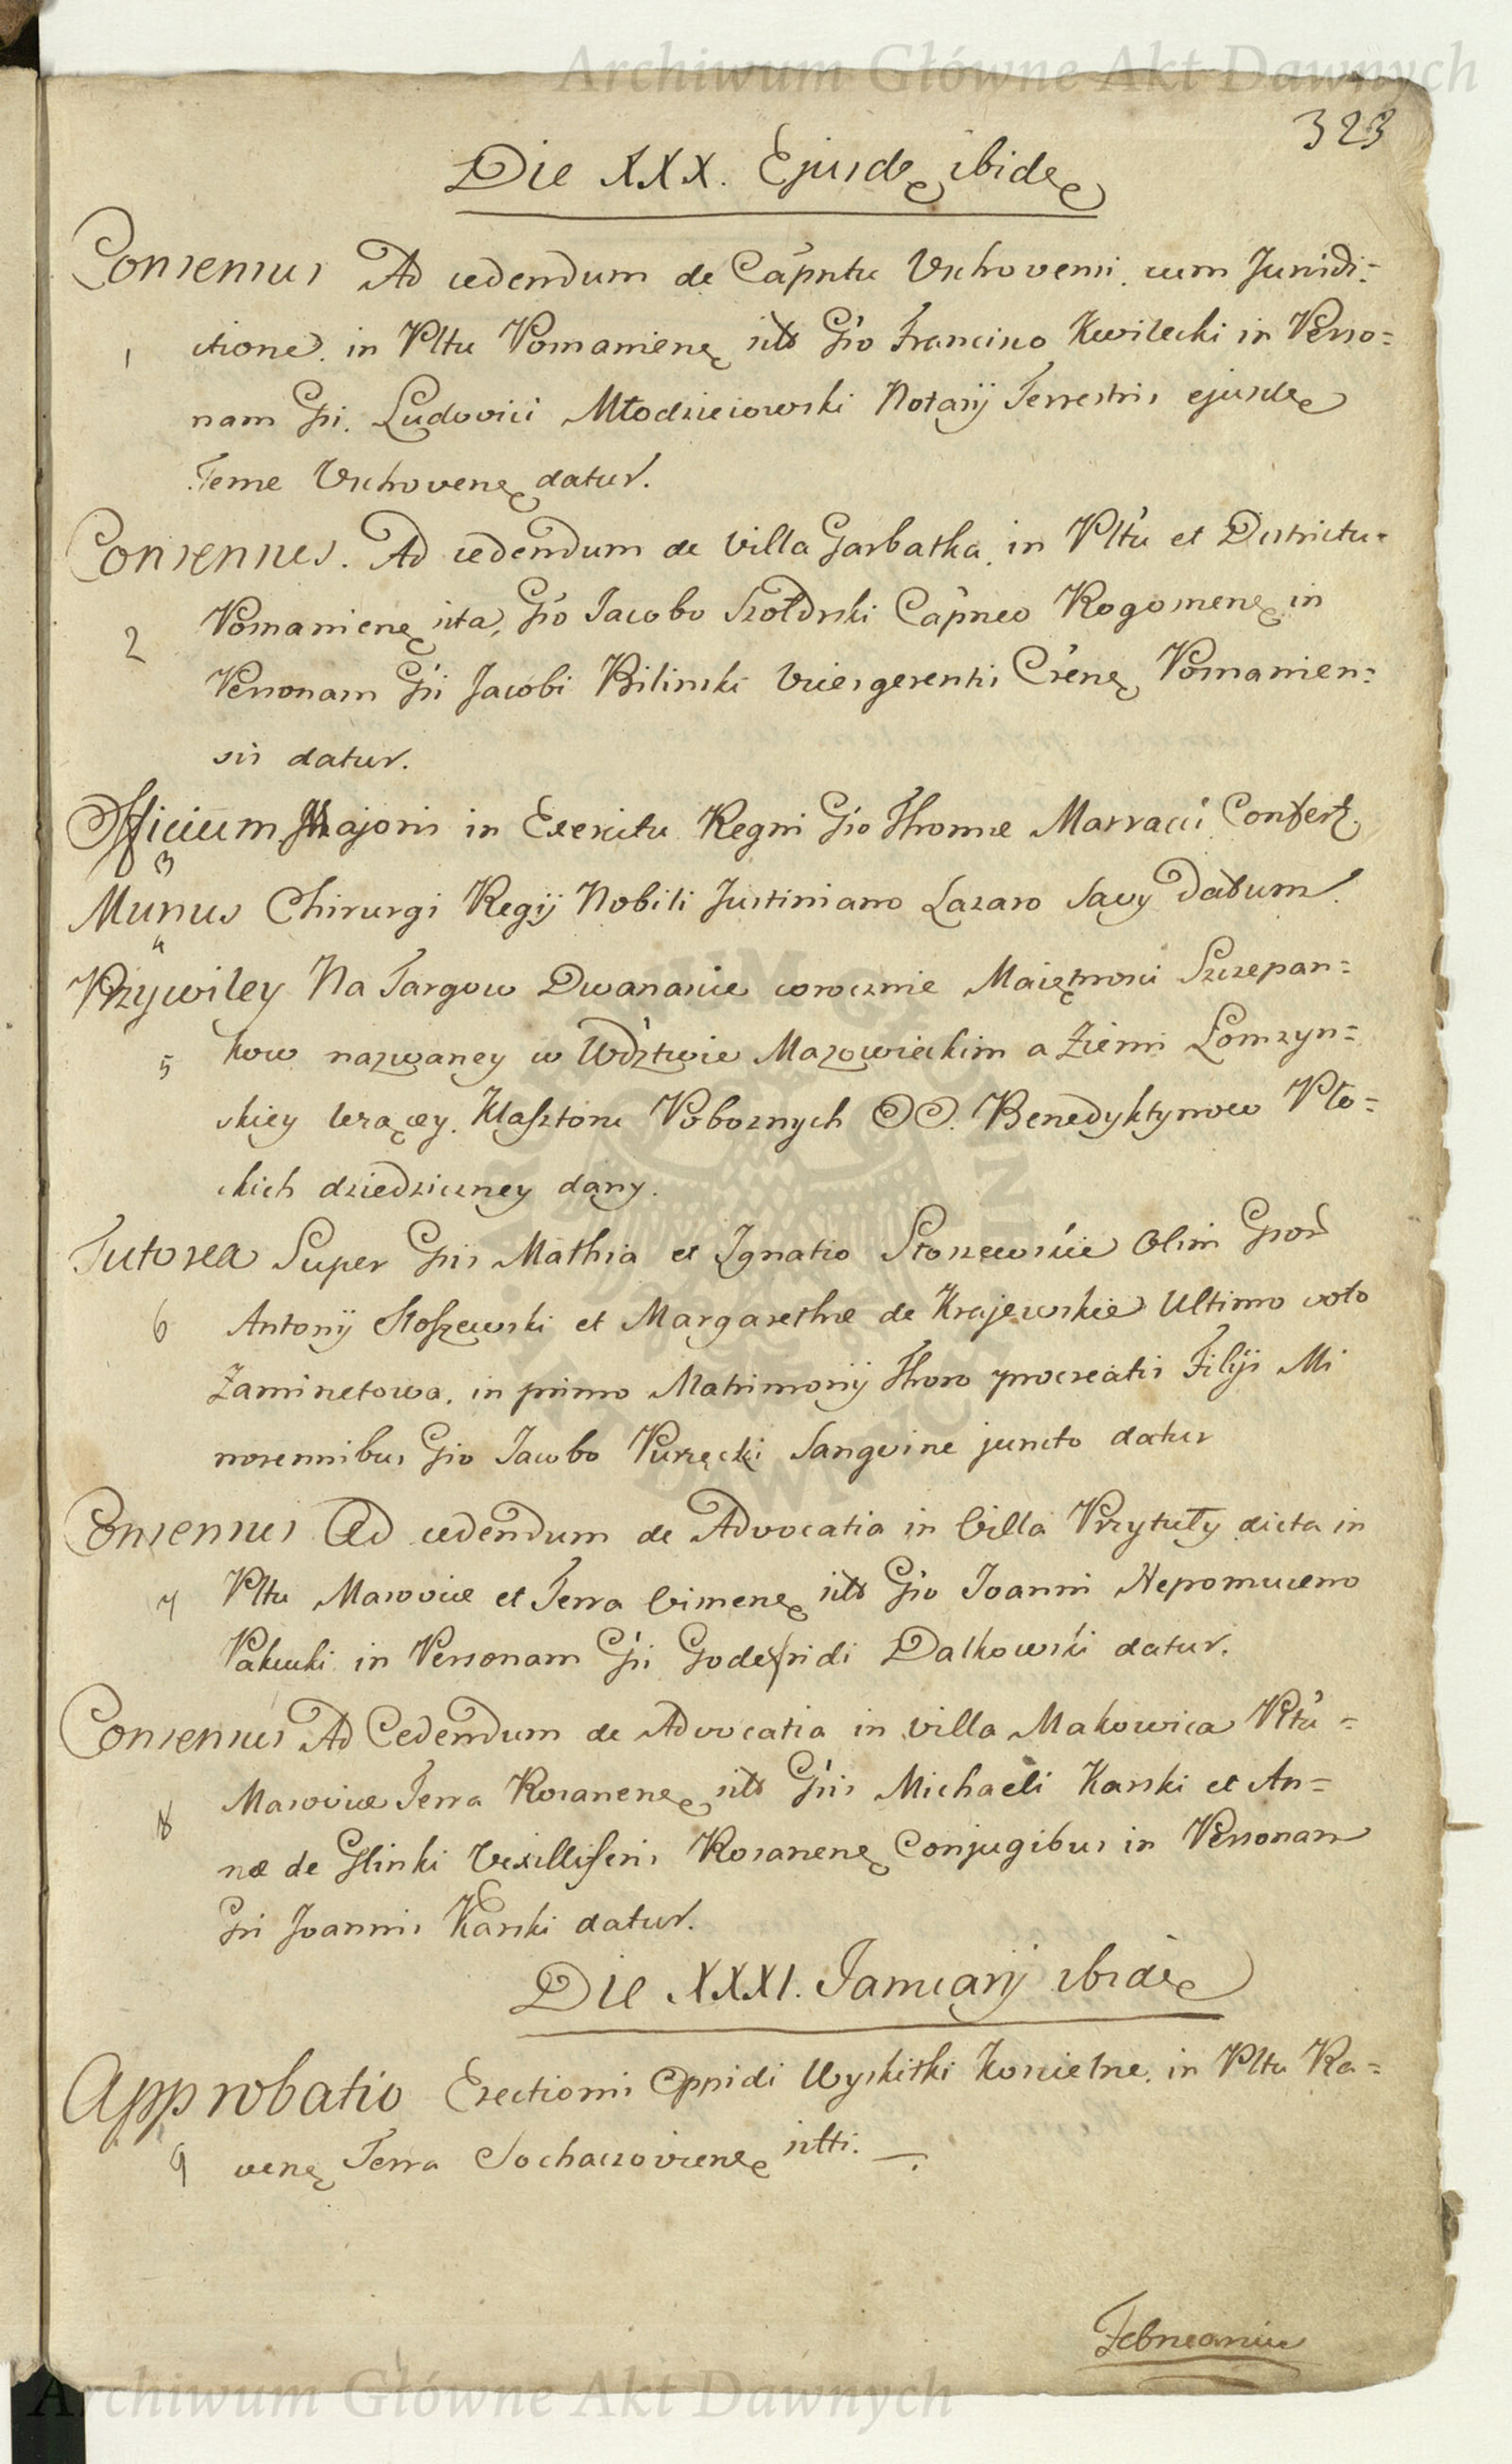 Archiwum Główne Akt Dawnych
323
Die XXX. Ejusdę ibidę
Consensus Ad cedendum de Capntu Vschovensi cum Jurisdi=
1 ctione in Pltu Posnanienę sito Gso Francisco Kwilecki in Perso=
nam Gsi Ludovici Młodzieiowski Notarij Terrestris ejusdę
Terræ Vschovenę datur.
Consensus. Ad cedendum de Villa Garbatka in Pltu et Districtu
2 Posnanienę sita, Gso Jacobo Szołdrski Capneo Rogosnenę in
Personam Gsi Jacobi Bilinski Vicesgerentis Csenę Posnanien=
sis datur.
Officium Majoris in Exercitu Regni Gso Thomæ Marracci Confert.
3
Munus Chirurgi Regij Nobili Justiniano Lazaro Savy Datum.
4
Przywiley Na Targow Dwanascie corocznie Maiętnosci Szczepan=
5 kow nazwaney w Wdztwie Mazowieckim a Ziemi Łomzyn=
skiey lezącey. Klasztoru Poboznych OO. Benedyktynow Pło=
ckich dziedziczney dany.
Tutorea Super Gsis Mathia et Ignatio Stoszewscie Olim Gsor
6 Antonij Stoszewski et Margarethæ de Krajewskie Ultimo voto
Zaminetowa. in primo Matrimonij Thoro procreatis Filijs Mi
norennibus Gso Jacobo Purzęcki Sanguine juncto datur
Consensus Ad cedendum de Advocatia in Villa Przytuły dicta in
7 Pltu Masoviæ et Terra Visnenę sito Gso Joanni Nepomuceno
Pakucki in Personam Gsi Godefridi Dalkowski datur.
Consensus Ad Cedendum de Advocatia in villa Makowica Pltu =
8 Masoviæ Terra Rozanenę sito Gsis Michaeli Karski et An=
næ de Glinki Vexilliferis Rozanenę Conjugibus in Personam
Gsi Joannis Karski datur.
Die XXXI. Januarij ibidę
Approbatio Erectionis Oppidi Wyskitki Koscielne. in Pltu Ra=
9 venę Terra Sochaczovienę siti.
Februarius
Archiwum Główne Akt Dawnych